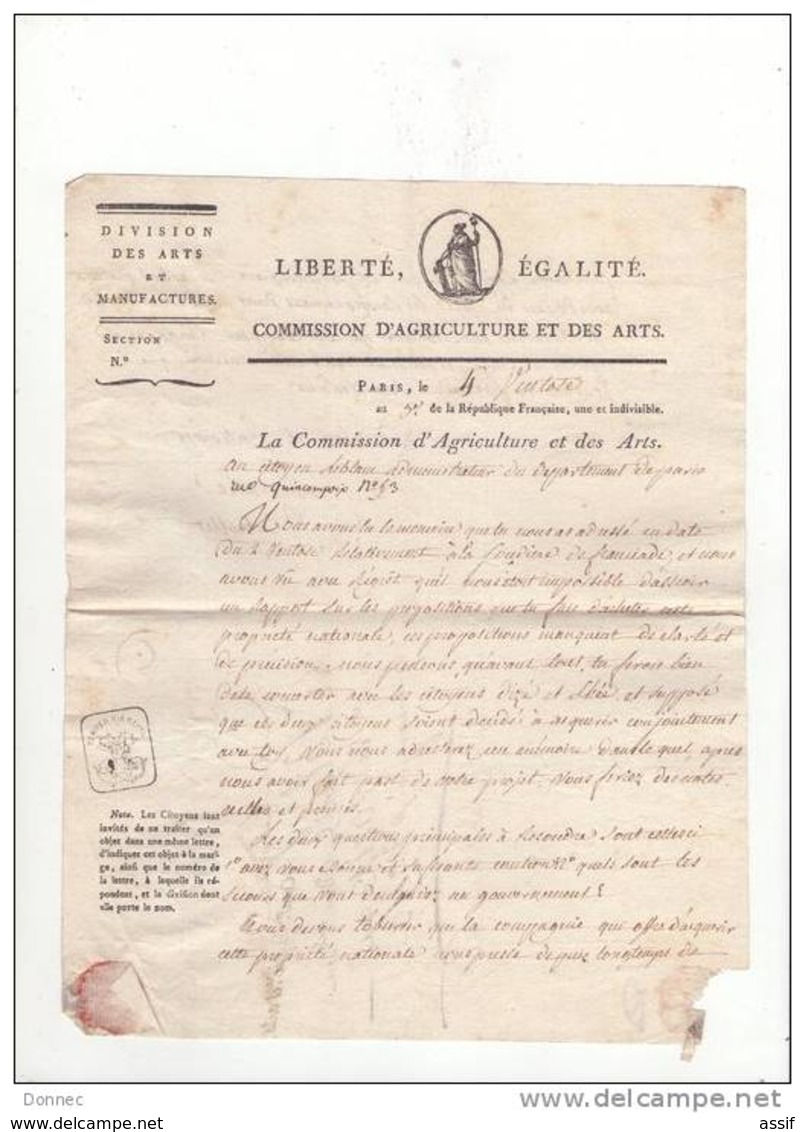 DIVISION
DES ARTS
ET
MANUFACTURES.
SECTION
N.º
LIBERTÉ, ÉGALITÉ.
COMMISSION D'AGRICULTURE ET DES ARTS.
PARIS, le 4 Ventose
an 3e. de la République Française, une et indivisible.
La Commission d'Agriculture et des Arts.
Au citoyen Leblanc administrateur du departement de paris
rue quincampoix N.º 63
Nous avons lu le memoire que tu nous as adressé en date
du 2 Ventose relativement à la soudiere de franciade, et nous
avons vu avec regret qu'il nous etoit impossible d'asseoir
un rapport sur les propositions que tu fais d'acheter cette
propriété nationale, ces propositions manquent de clarté et
de précision. nous pensons qu'avant tout, tu ferois bien
de te concerter avec les citoyens dizé et Shée, et supposé
que ces deux citoyens soient decidés à acquerir conjointement
avec toy, vous nous adresserez un mémoire dans le quel, après
nous avoir fait part de votre projet, vous feriez des
et
Les deux questions principales à resoudre sont celles ci
1º avez vous donner et suffisante caution? 2º quels sont les
secours que vous exiguez du gouvernement?
Nous devons t'observer que la compagnie qui offre d'acquerir
cette propriété nationale nous presse depuis longtemps de
Nota. Les Citoyens sont
invités de ne traiter qu'un
objet dans une même lettre,
d'indiquer cet objet à la mar-
ge, ainsi que le numéro de
la lettre, à laquelle ils ré-
pondent, et la Section dont
elle porte le nom.
Donnec
www.delcampe.net
assif